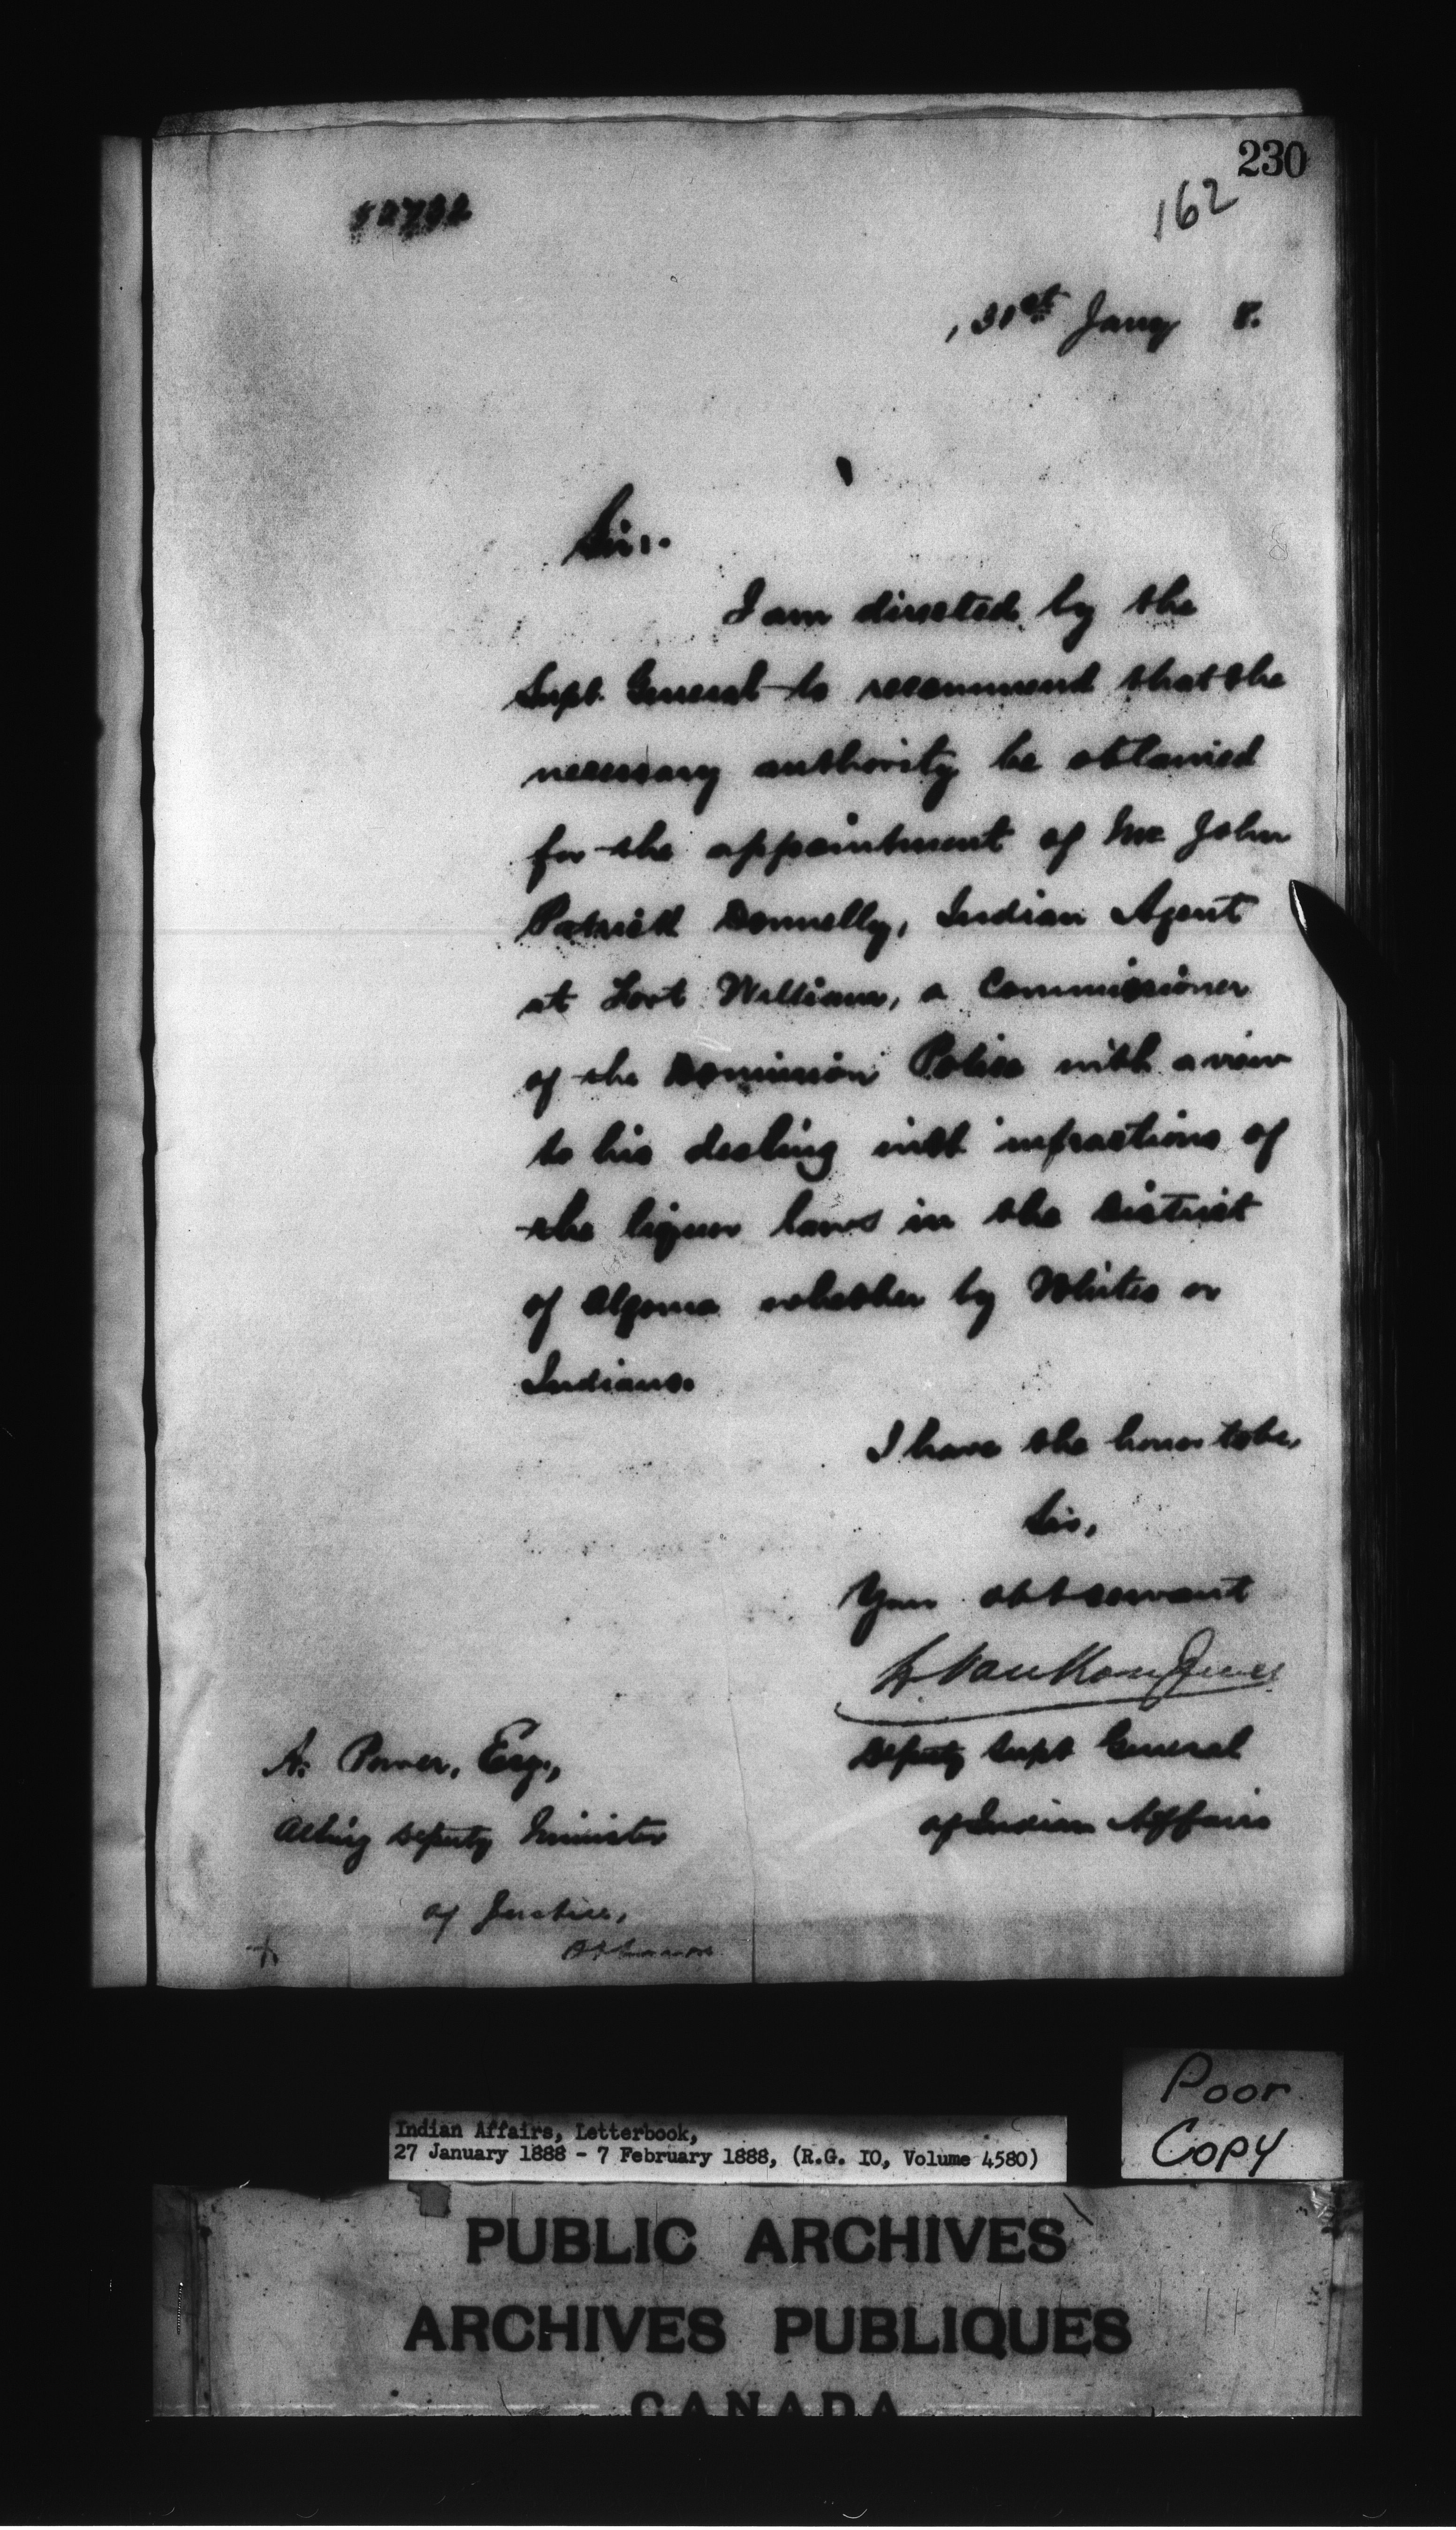 230
162
, 31st Jany 8.
Sir:.
I am directed by the
Supt. General to recommend that the
necessary authority be obtained
for the appointment of Mr John
Patrick Donnelly, Indian Agent
at Fort William, a Commissioner
of the Dominion Police with a view
to his dealing with infractions of
the liquor laws in the District
of Algoma whether by Whites or
Indians.
I have the honor to be,
Sir,
Your obt servant
L. VanKoughnet
Deputy Supt General
of Indian Affairs
A. Power, Esq.,
Acting Deputy Minister
of Justice,
Ottawa
Poor
Copy
Indian Affairs, Letterbook,
27 January 1888 - 7 February 1888, (R.G. IO, Volume 4580)
PUBLIC ARCHIVES
ARCHIVES PUBLIQUES
CANADA